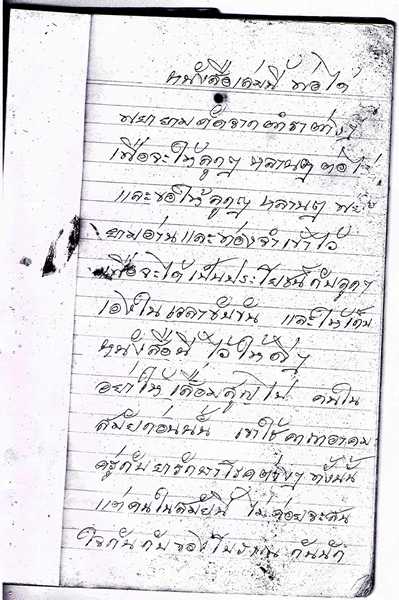 หนังสือเล่มนี้ พ่อได้
พยายามคัดจากตำราต่างๆ
เพื่อจะให้ลูกๆ หลานๆ ต่อไป
และขอให้ลูกๆ หลานๆ พยา
ยามอ่านและท่องจำเข้าไว้
เพื่อจะได้เป็นประโยชน์กับลูกๆ
เองในเวลาขับขัน และให้เก็บ
หนังสือนี้ไว้ให้ดีๆ
อย่าให้เสื่อมสูญไป คนใน
สมัยก่อนนั้น เขาใช้คาถาอาคม
คู่กับยารักษาโรคต่างๆ ทั้งนั้น
แต่คนในสมัยนี้ ไม่ค่อยจะสน
ใจกันกับของโบราณ กันนัก